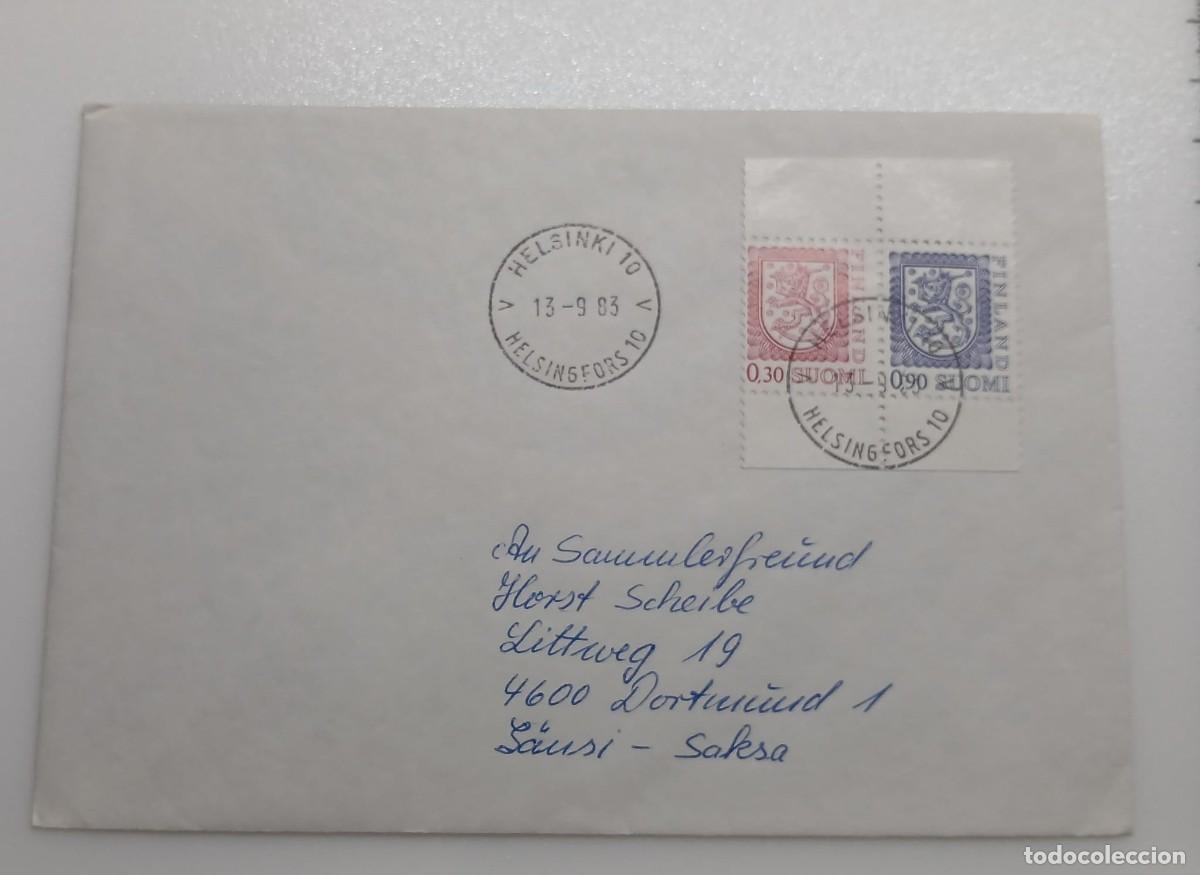 HELSINKI 10
13-9 83
HELSINGFORS 10
FINLAND
0,30 SUOMI
FINLAND
0,90 SUOMI
HELSINGFORS 10
An Sammlerfreund
Horst Scheibe
Littweg 19
4600 Dortmund 1
Länsi - Saksa
todocoleccion